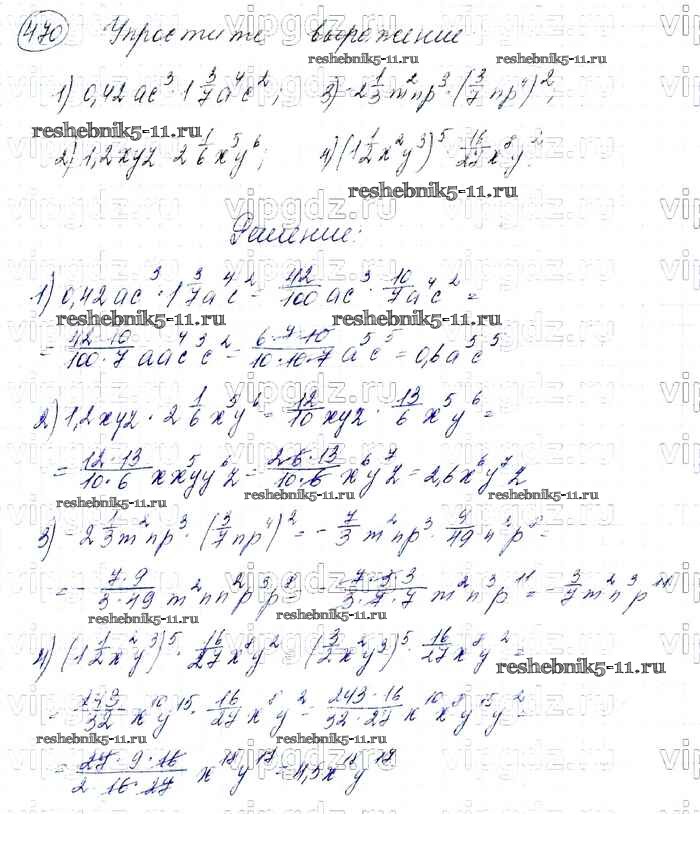 470 Упростите выражение
1) 0,42ac³ · 1 3/7 a⁴c²; 3) -2 1/3 m²np³ · (3/7 np⁴)²;
reshebnik5-11.ru
2) 1,2xyz · 2 1/6 x⁵y⁶; 4) (1 1/2 x²y³)⁵ · 16/27 x⁸y²
reshebnik5-11.ru
Решение:
1) 0,42ac³ · 1 3/7 a⁴c² = 42/100 ac³ · 10/7 a⁴c² =
reshebnik5-11.ru reshebnik5-11.ru
= 42·10/100·7 aa⁴c³c² = 6·7·10/10·10·7 a⁵c⁵ = 0,6a⁵c⁵
2) 1,2xyz · 2 1/6 x⁵y⁶ = 12/10 xyz · 13/6 x⁵y⁶ =
= 12·13/10·6 xx⁵yy⁶z = 2·6·13/10·6 x⁶y⁷z = 2,6x⁶y⁷z
reshebnik5-11.ru reshebnik5-11.ru
3) -2 1/3 m²np³ · (3/7 np⁴)² = -7/3 m²np³ · 9/49 n²p⁸ =
= -7·9/3·49 m²nn²p³p⁸ = -7·3·3/3·7·7 m²n³p¹¹ = -3/7 m²n³p¹¹
reshebnik5-11.ru
4) (1 1/2 x²y³)⁵ · 16/27 x⁸y² = (3/2 x²y³)⁵ · 16/27 x⁸y² =
reshebnik5-11.ru
= 243/32 x¹⁰y¹⁵ · 16/27 x⁸y² = 243·16/32·27 x¹⁰x⁸y¹⁵y² =
reshebnik5-11.ru reshebnik5-11.ru
= 27·9·16/2·16·27 x¹⁸y¹⁷ = 4,5x¹⁸y¹⁷
vipgdz.ru